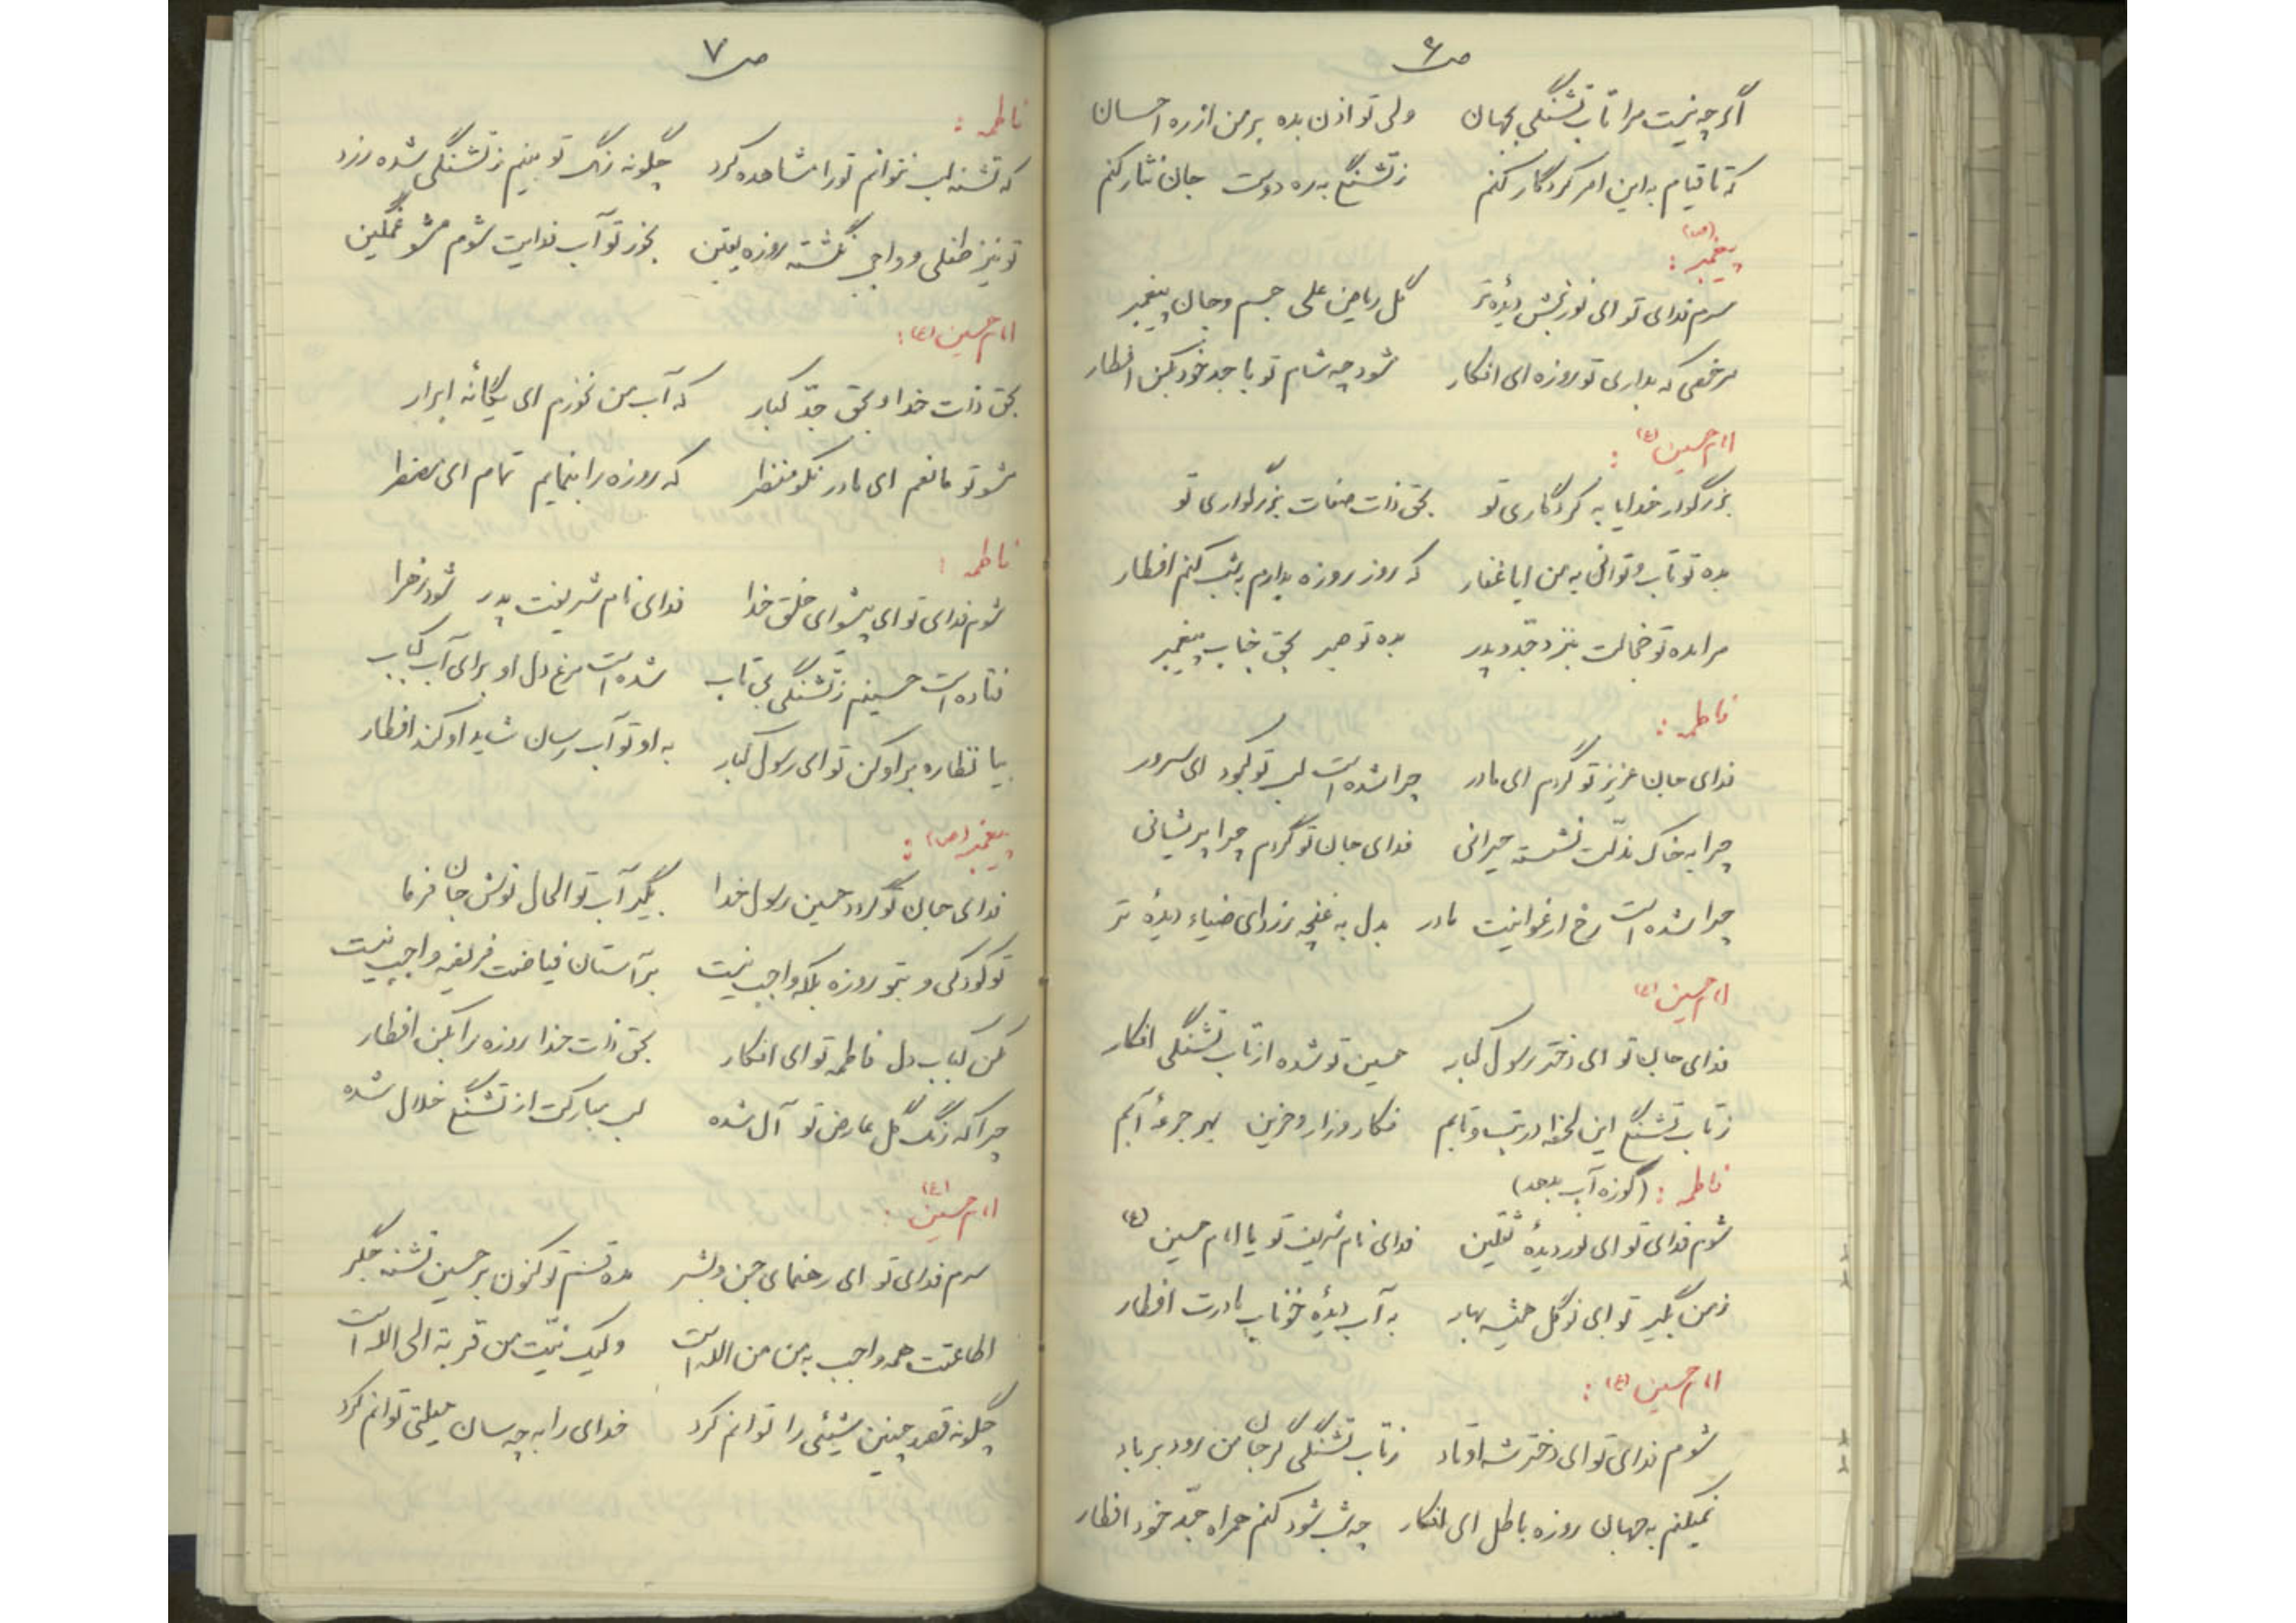 ص ۶
اگرچه نیست مرا تاب تشنگی بجهان ولی تو اذن بده بر من از ره احسان
که تا قیام به این امر کردگار کنم ز تشنگی به ره دوست جان نثار کنم
پیغمبر (ص) :
سرم فدای تو ای نوربخش دیدهٔ تر گل ریاض علی جسم و جان پیغمبر
مرخصی که بداری تو روزه ای افکار شود چه شام تو با جد خود بکن افطار
امام حسین (ع) :
بزرگوار خدایا به کردگاری تو بحق ذات صفات بزرگواری تو
بده تو تاب و توانی به من ایا غفار که روز روزه بدارم بشب کنم افطار
مرا مده تو خجالت بنزد جد و پدر بده تو صبر بحق جناب پیغمبر
فاطمه :
فدای جان عزیز تو گردم ای مادر چرا شده است لب تو کبود ای سرور
چرا به خاک مذلّت نشسته حیرانی فدای جان تو گردم چرا پریشانی
چرا شده است رخ ارغوانیت مادر بدل به غنچه زرد ای ضیاء دیدهٔ تر
امام حسین (ع)
فدای جان تو ای دختر رسول کبار حسین تو شده از تاب تشنگی افکار
ز تاب تشنگی این لحظه در تب و تابم فکار و زار و حزین بهر جرعهٔ آبم
فاطمه : (کوزه آب بدهد)
شوم فدای تو ای نور دیدهٔ ثقلین فدای نام شریف تو یا امام حسین (ع)
ز من بگیر تو ای نوگل همیشه بهار به آب دیدهٔ خوناب مادرت افطار
امام حسین (ع) :
شوم فدای تو ای دختر شه اوتاد ز تاب تشنگی گر جان من رود بر باد
نمیکنم به جهان روزه باطل ای افکار چه شب شود کنم همراه جد خود افطار
ص ۷
فاطمه :
که تشنه لب نتوانم تو را مشاهده کرد چگونه رنگ تو بینم ز تشنگی شده زرد
تو نیز طفلی و واجب نگشته روزه یقین بخور تو آب فدایت شوم مشو غمگین
امام حسین (ع) :
بحق ذات خدا و بحق جدّ کبار که آب من نخورم ای یگانهٔ ابرار
مشو تو مانعم ای مادر نکو منظر که روزه را بنمایم تمام ای مضطر
فاطمه :
شوم فدای تو ای پیشوای خلق خدا فدای نام شریفت پدر شود زهرا
فتاده است حسینم ز تشنگی بی تاب شده است مرغ دل او برای آب کباب
بیا نظاره بر او کن تو ای رسول کبار به او تو آب رسان شاید او کند افطار
پیغمبر (ص) :
فدای جان تو گردد حسین رسول خدا بگیر آب تو الحال نوش جان فرما
تو کودکی و بتو روزه بلکه واجب نیست بر آستان فیاضت فریضه واجب نیست
مکن کباب دل فاطمه تو ای افکار بحق ذات خدا روزه را بکن افطار
چرا که رنگ گل عارض تو آل شده لب مبارکت از تشنگی خلال شده
امام حسین (ع) :
سرم فدای تو ای رهنمای جن و بشر مده قسم تو کنون بر حسین تشنه جگر
اطاعتت همه واجب به من من الله است ولیک نیّت من قربة الی الله است
چگونه قصد چنین شیئی را توانم کرد خدای را به چه سان حیلتی توانم کرد